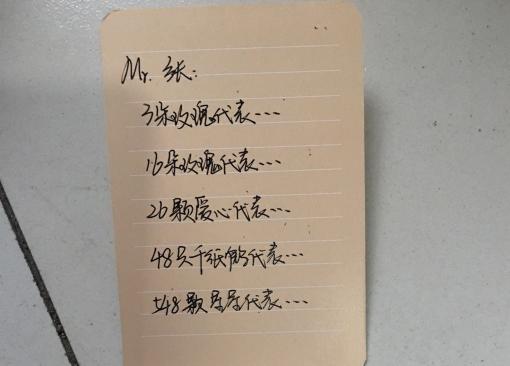 Mr. 张:
3朵玫瑰代表…
16朵玫瑰代表…
26颗爱心代表…
48只千纸鹤代表…
148颗星星代表…